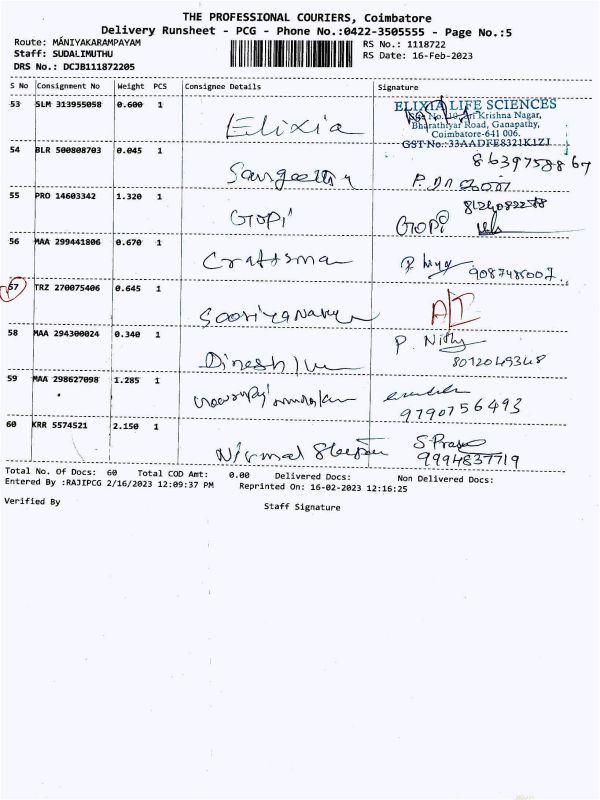 THE PROFESSIONAL COURIERS, Coimbatore
Delivery Runsheet - PCG - Phone No.:0422-3505555 - Page No.:5
Route: MANIYAKARAMPAYAM RS No.: 1118722
Staff: SUDALIMUTHU RS Date: 16-Feb-2023
DRS No.: DCJB111872205
S No Consignment No Weight PCS Consignee Details Signature
53 SLM 313955058 0.600 1
Elixia
ELIXIA LIFE SCIENCES
Krishna Nagar,
Bharathiyar Road, Ganapathy,
Coimbatore-641 006.
GST No.:33AADFE8321K1ZJ
54 BLR 500808703 0.045 1
Sangeetha
8639758867
55 PRO 14603342 1.320 1
Gopi Gopi
56 MAA 299441806 0.670 1
Craftsman
57 TRZ 270075406 0.645 1
58 MAA 294300024 0.340 1
P. Nithy
Dinesh 8072049348
59 MAA 298627098 1.285 1
9790756493
60 KRR 5574521 2.150 1
Nirmal
9994837719
Total No. Of Docs: 60 Total COD Amt: 0.00 Delivered Docs: Non Delivered Docs:
Entered By :RAJIPCG 2/16/2023 12:09:37 PM Reprinted On: 16-02-2023 12:16:25
Verified By Staff Signature